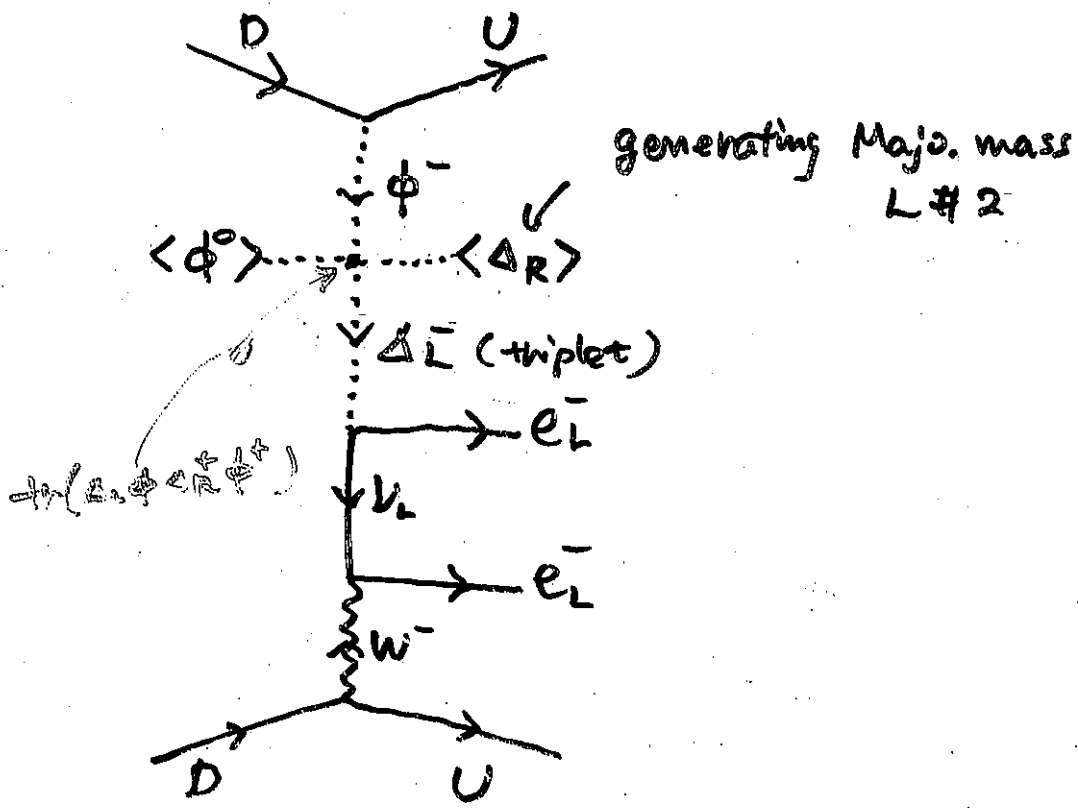 D U
generating Majo. mass
L # 2
ϕ⁻
<ϕ⁰> <Δ_R>
Δ_L⁻ (triplet)
e_L⁻
ν_L
e_L⁻
W⁻
D U